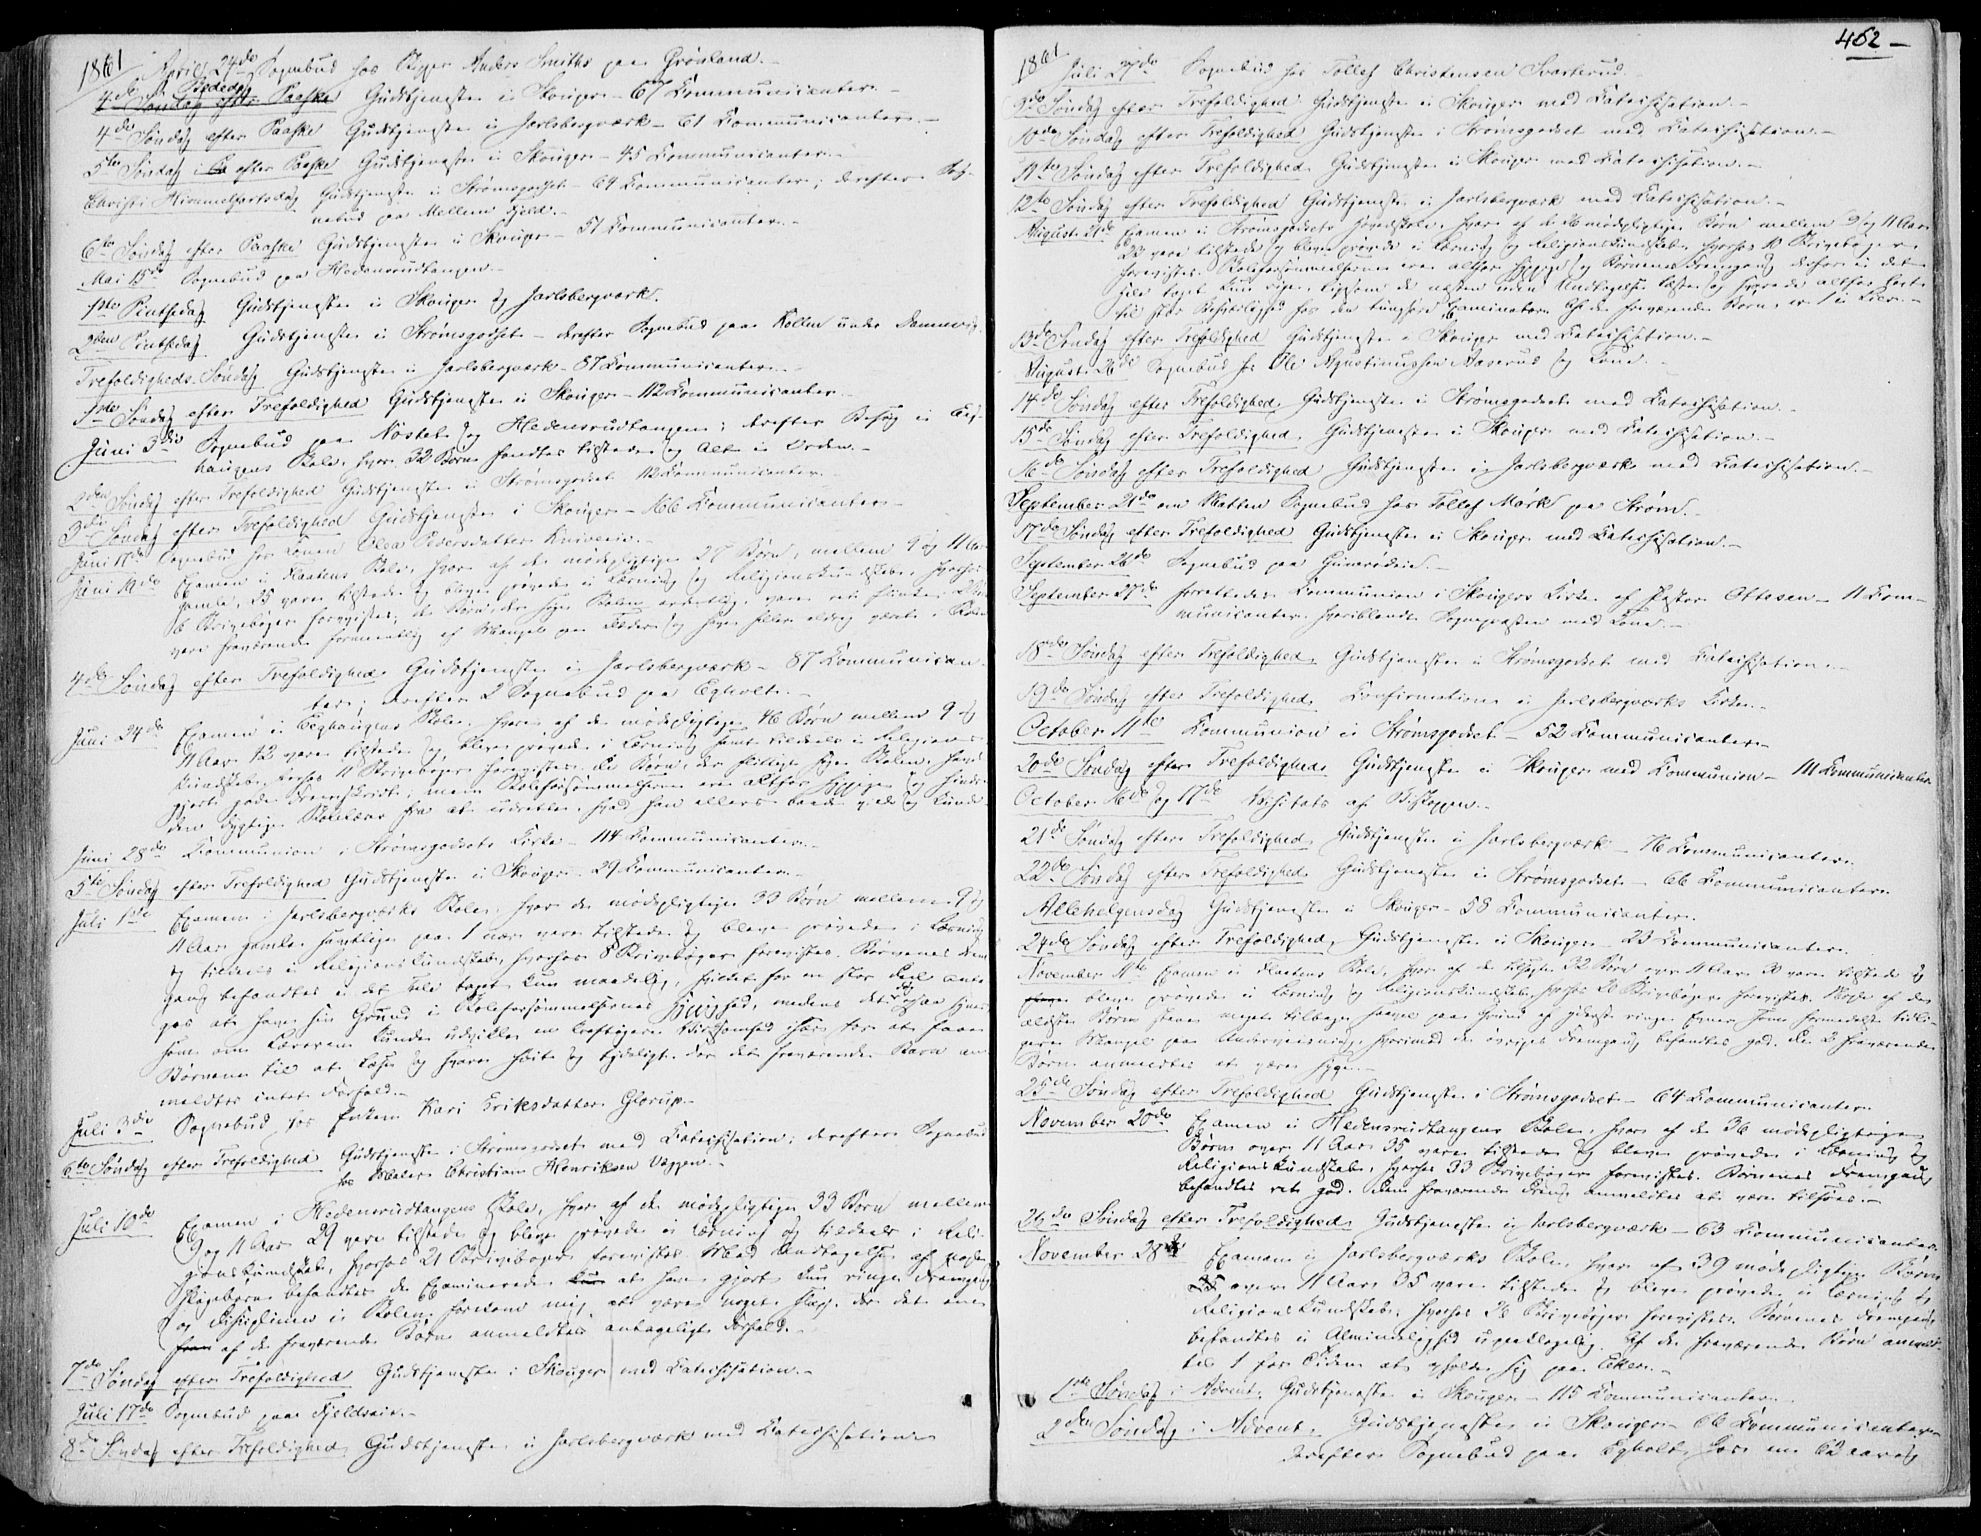 1861
April 24de Sognebud hos Skipper Anders Smiths paa Grønland.-
Bededag
4de Søndag efter Paaske Gudstjeneste i Skouger - 67 Kommunicanter.-
4de Søndag efter Paaske Gudstjeneste i Jarlsbergværk - 61 Kommunicanter.-
5te Søndag i Pa efter Paaske Gudstjeneste i Skouger - 45 Kommunicanter.-
Christi Himmelfartsdag Gudstjeneste i Strømsgodset - 69 Kommunicanter; derefter
paa Mellem Fjeld.-
6te Søndag efter Paaske Gudstjeneste i Skouger - 51 Kommunicanter.-
Mai 15de Sognebud paa Hedensrudtangen.-
1ste Pintsedag Gudstjeneste i Skouger og Jarlsbergværk.
2den Pintsedag Gudstjeneste i Strømsgodset - derefter Sognebud paa Kollen under
Trefoldigheds-Søndag Gudstjeneste i Jarlsbergværk - 87 Kommunicanter.-
1ste Søndag efter Trefoldighed Gudstjeneste i Skouger - 112 Kommunicanter.-
Juni 3die Sognebud paa Nøstet og Hedensrudtangen; derefter Besøg i Eeg-
haugens Skole, hvor 32 Børn fandtes tilstede og Alt i Orden.-
2den Søndag efter Trefoldighed Gudstjeneste i Strømsgodset 112 Kommunicanter.-
3die Søndag efter Trefoldighed Gudstjeneste i Skouger - 166 Kommunicanter.-
Juni 17de Sognebud hos Konen Olea Pedersdatter Kniverie.-
Juni 19de Examen i Flaatens Skole, hvor af de mødepligtige 27 Børn, mellem 9 og 11 Aar
gamle, 25 vare tilstede og bleve prøvede i Læsning og Religionskundskab, hvorhos
6 Skrivebøger forevistes; de Børn, der søge Skolen ordentlig, vare ret flinke; 2
vare fraværende formentlig af Mangel paa Klæder og have heller aldrig været i Skolen
4de Søndag efter Trefoldighed Gudstjeneste i Jarlsbergværk - 87 Kommunican-
ter; derefter 2 Sognebud paa Egholt.-
Juni 24de Examen i Eeghaugens Skole, hvor af de mødepligtige 46 Børn mellem 9 og
11 Aar 42 vare tilstede og bleve prøvede i Læsning samt tildeels i Religions-
kundskab, hvorhos 11 Skrivebøger forevistes. De Børn, der flittigt søge Skolen, havde
gjort gode Fremskridt; men Skoleforsømmelserne ere altfor hyppige og hindre
den dygtige Skolelærer fra at udrette, hvad han ellers baade vilde og kunde.
Juni 28de Kommunion i Strømsgodsets Kirke - 114 Kommunicanter.-
5te Søndag efter Trefoldighed Gudstjeneste i Skouger - 29 Kommunicanter.-
Juli 1ste Examen i Jarlsbergværks Skole, hvor de mødepligtige 33 Børn mellem 9 og
11 Aar gamle samtlige paa 1 nær vare tilstede og bleve prøvede i Læsning
og tildeels i Religionskundskab, hvorhos 8 Skrivebøger forevistes. Børnenes Frem-
gang befandtes i det Hele taget kun maadelig, hvilket for en stor Deel anta-
ges at have sin Grund i Skoleforsømmelsernes Hyppighed, medens det og saa synes
som om Læreren kunde udvikle en kraftigere Virksomhed især for at faae
Børnene til at læse og svare høit og tydeligt. For det fraværende Barn an-
meldtes intet Forfald.-
Juli 3die Sognebud hos Enken Kari Eriksdatter Glorup.-
6te Søndag efter Trefoldighed Gudstjeneste i Strømsgodset med Katechisation; derefter Sognebud
hos Maler Christian Henriksen Uggen.-
Juli 10de Examen i Hedensrudtangens Skole, hvor af de mødepligtige 33 Børn mellem
9 og 11 Aar 29 vare tilstede og bleve prøvede i Læsning og tildeels i Reli-
gionskundskab, hvorhos 21 Skrivebøger forevistes. Med Undtagelse af nogle
Pigebørn befandtes de Examinerede kun at have gjort kun ringe Fremgang
og Disciplinen i Skolen forekom mig at være noget slap. For det ene
fra af de fraværende Børn anmeldtes antageligt Forfald.-
7de Søndag efter Trefoldighed Gudstjeneste i Skouger med Katechisation.-
Juli 17de Sognebud paa Fjeldseie.-
8de Søndag efter Trefoldighed Gudstjeneste i Jarlsbergværk med Katechisation.-
462-
1861
Juli 27de Sognebud hos Tollef Christensen Svarterud.
9de Søndag efter Trefoldighed Gudstjeneste i Skouger med Katechisation.-
10de Søndag efter Trefoldighed Gudstjeneste i Strømsgodset med Katechisation.-
11te Søndag efter Trefoldighed Gudstjeneste i Skouger med Katechisation.-
12te Søndag efter Trefoldighed Gudstjeneste i Jarlsbergværk med Katechisation.-
August 21de Examen i Strømsgodsets Hovedskole, hvor af de 26 mødepligtige Børn mellem 9 og 11 Aar
22 vare tilstede og bleve prøvede i Læsning og Religionskundskab, hvorhos 10 Skrivebøger
forevistes. Skoleforsømmelserne ere altfor hyppige og Børnenes Fremgang derfor i det
Hele taget kun ringe, ligesom de næsten uden Undtagelse læste og svarede altfor sagte
til stor Besværlighed for den tunghørte Examinator. Af de fraværende Børn er 1 i
13de Søndag efter Trefoldighed Gudstjeneste i Skouger med Katechisation.-
August 26de Sognebud hos Ole Agustinussen Aaserud og Kone.-
14de Søndag efter Trefoldighed Gudstjeneste i Strømsgodset med Katechisation.-
15de Søndag efter Trefoldighed Gudstjeneste i Skouger med Katechisation.-
16de Søndag efter Trefoldighed Gudstjeneste i Jarlsbergværk med Katechisation.-
September 21de om Natten Sognebud hos Tollef Mørk paa Strøm.-
17de Søndag efter Trefoldighed Gudstjeneste i Skouger med Katechisation.-
September 26de Sognebud paa Gunerødeie.-
September 27de forrettedes Kommunion i Skougers Kirke af Pastor Ottesen - 11 Kom-
municanter, hvoriblandt Sognepræsten med Kone.-
18de Søndag efter Trefoldighed Gudstjeneste i Strømsgodset med Katechisation.-
19de Søndag efter Trefoldighed Konfirmation i Jarlsbergværks Kirke.-
October 11te Kommunion i Strømsgodset - 52 Kommunicanter.-
20de Søndag efter Trefoldighed Gudstjeneste i Skouger med Kommunion - 111 Kommunicanter.
October 16de og 17de Visitats af Biskoppen.-
21de Søndag efter Trefoldighed Gudstjeneste i Jarlsbergværk - 76 Kommunicanter.
22de Søndag efter Trefoldighed Gudstjeneste i Strømsgodset - 66 Kommunicanter.
Allehelgensdag Gudstjeneste i Skouger - 58 Kommunicanter.
24de Søndag efter Trefoldighed Gudstjeneste i Skouger - 23 Kommunicanter.
November 11te Examen i Flaatens Skole, hvor af de tilsagte 32 Børn over 11 Aar 30 vare tilstede og
bleve prøvede i Læsning og Religionskundskab, hvorhos 20 Skrivebøger forevistes. Nogle af de
ældste Børn staae meget tilbage saavel paa Grund af yderst ringe Evner som formedelst tidli-
gere Mangel paa Underviisning, hvorimod de øvriges Fremgang befandtes god. De 2 fraværende
Børn anmeldtes at være syge.-
25de Søndag efter Trefoldighed Gudstjeneste i Strømsgodset - 64 Kommunicanter.
November 20de Examen i Hedensrudtangens Skole, hvor af de 36 mødepligtige
Børn over 11 Aar 35 vare tilstede og bleve prøvede i Læsning og
Religionskundskab, hvorhos 33 Skrivebøger forevistes. Børnenes Fremgang
befandtes ret god. Den fraværende Dreng anmeldtes at være tilsøes.-
26de Søndag efter Trefoldighed Gudstjeneste i Jarlsbergværk - 63 Kommunicanter.
November 28de Examen i Jarlsbergværks Skole, hvor af 39 mødepligtige Børn
35 over 11 Aar 35 vare tilstede og bleve prøvede i Læsning og
Religionskundskab, hvorhos 26 Skrivebøger forevistes. Børnenes Fremgang
befandtes i Almindelighed upaaklagelig. Af de fraværende Børn anmeld-
tes 1 for Tiden at opholde sig paa Eker.-
1ste Søndag i Advent, Gudstjeneste i Skouger - 115 Kommunicanter.
2den Søndag i Advent, Gudstjeneste i Skouger - 66 Kommunicanter
derefter Sognebud paa Egholt hos en 62 aarig